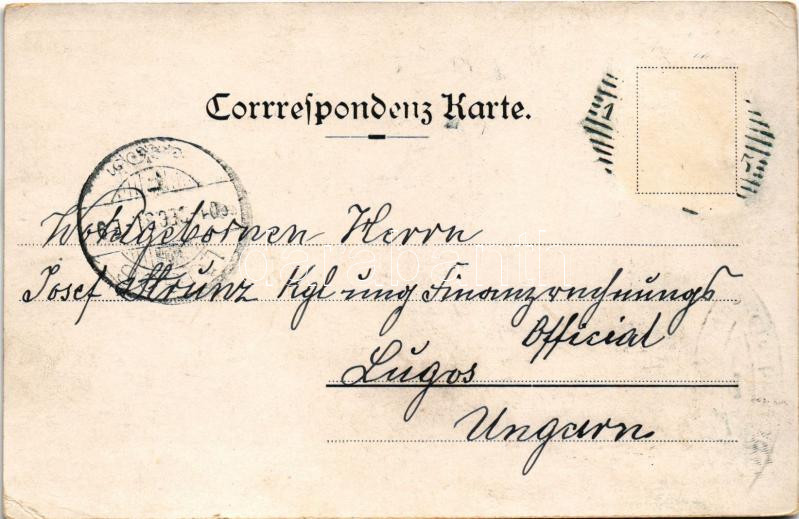 Corrrespondenz Karte.
Wohlgebornen Herrn
Josef Strunz Kgl ung Finanzrechnungs
Official
Lugos
Ungarn